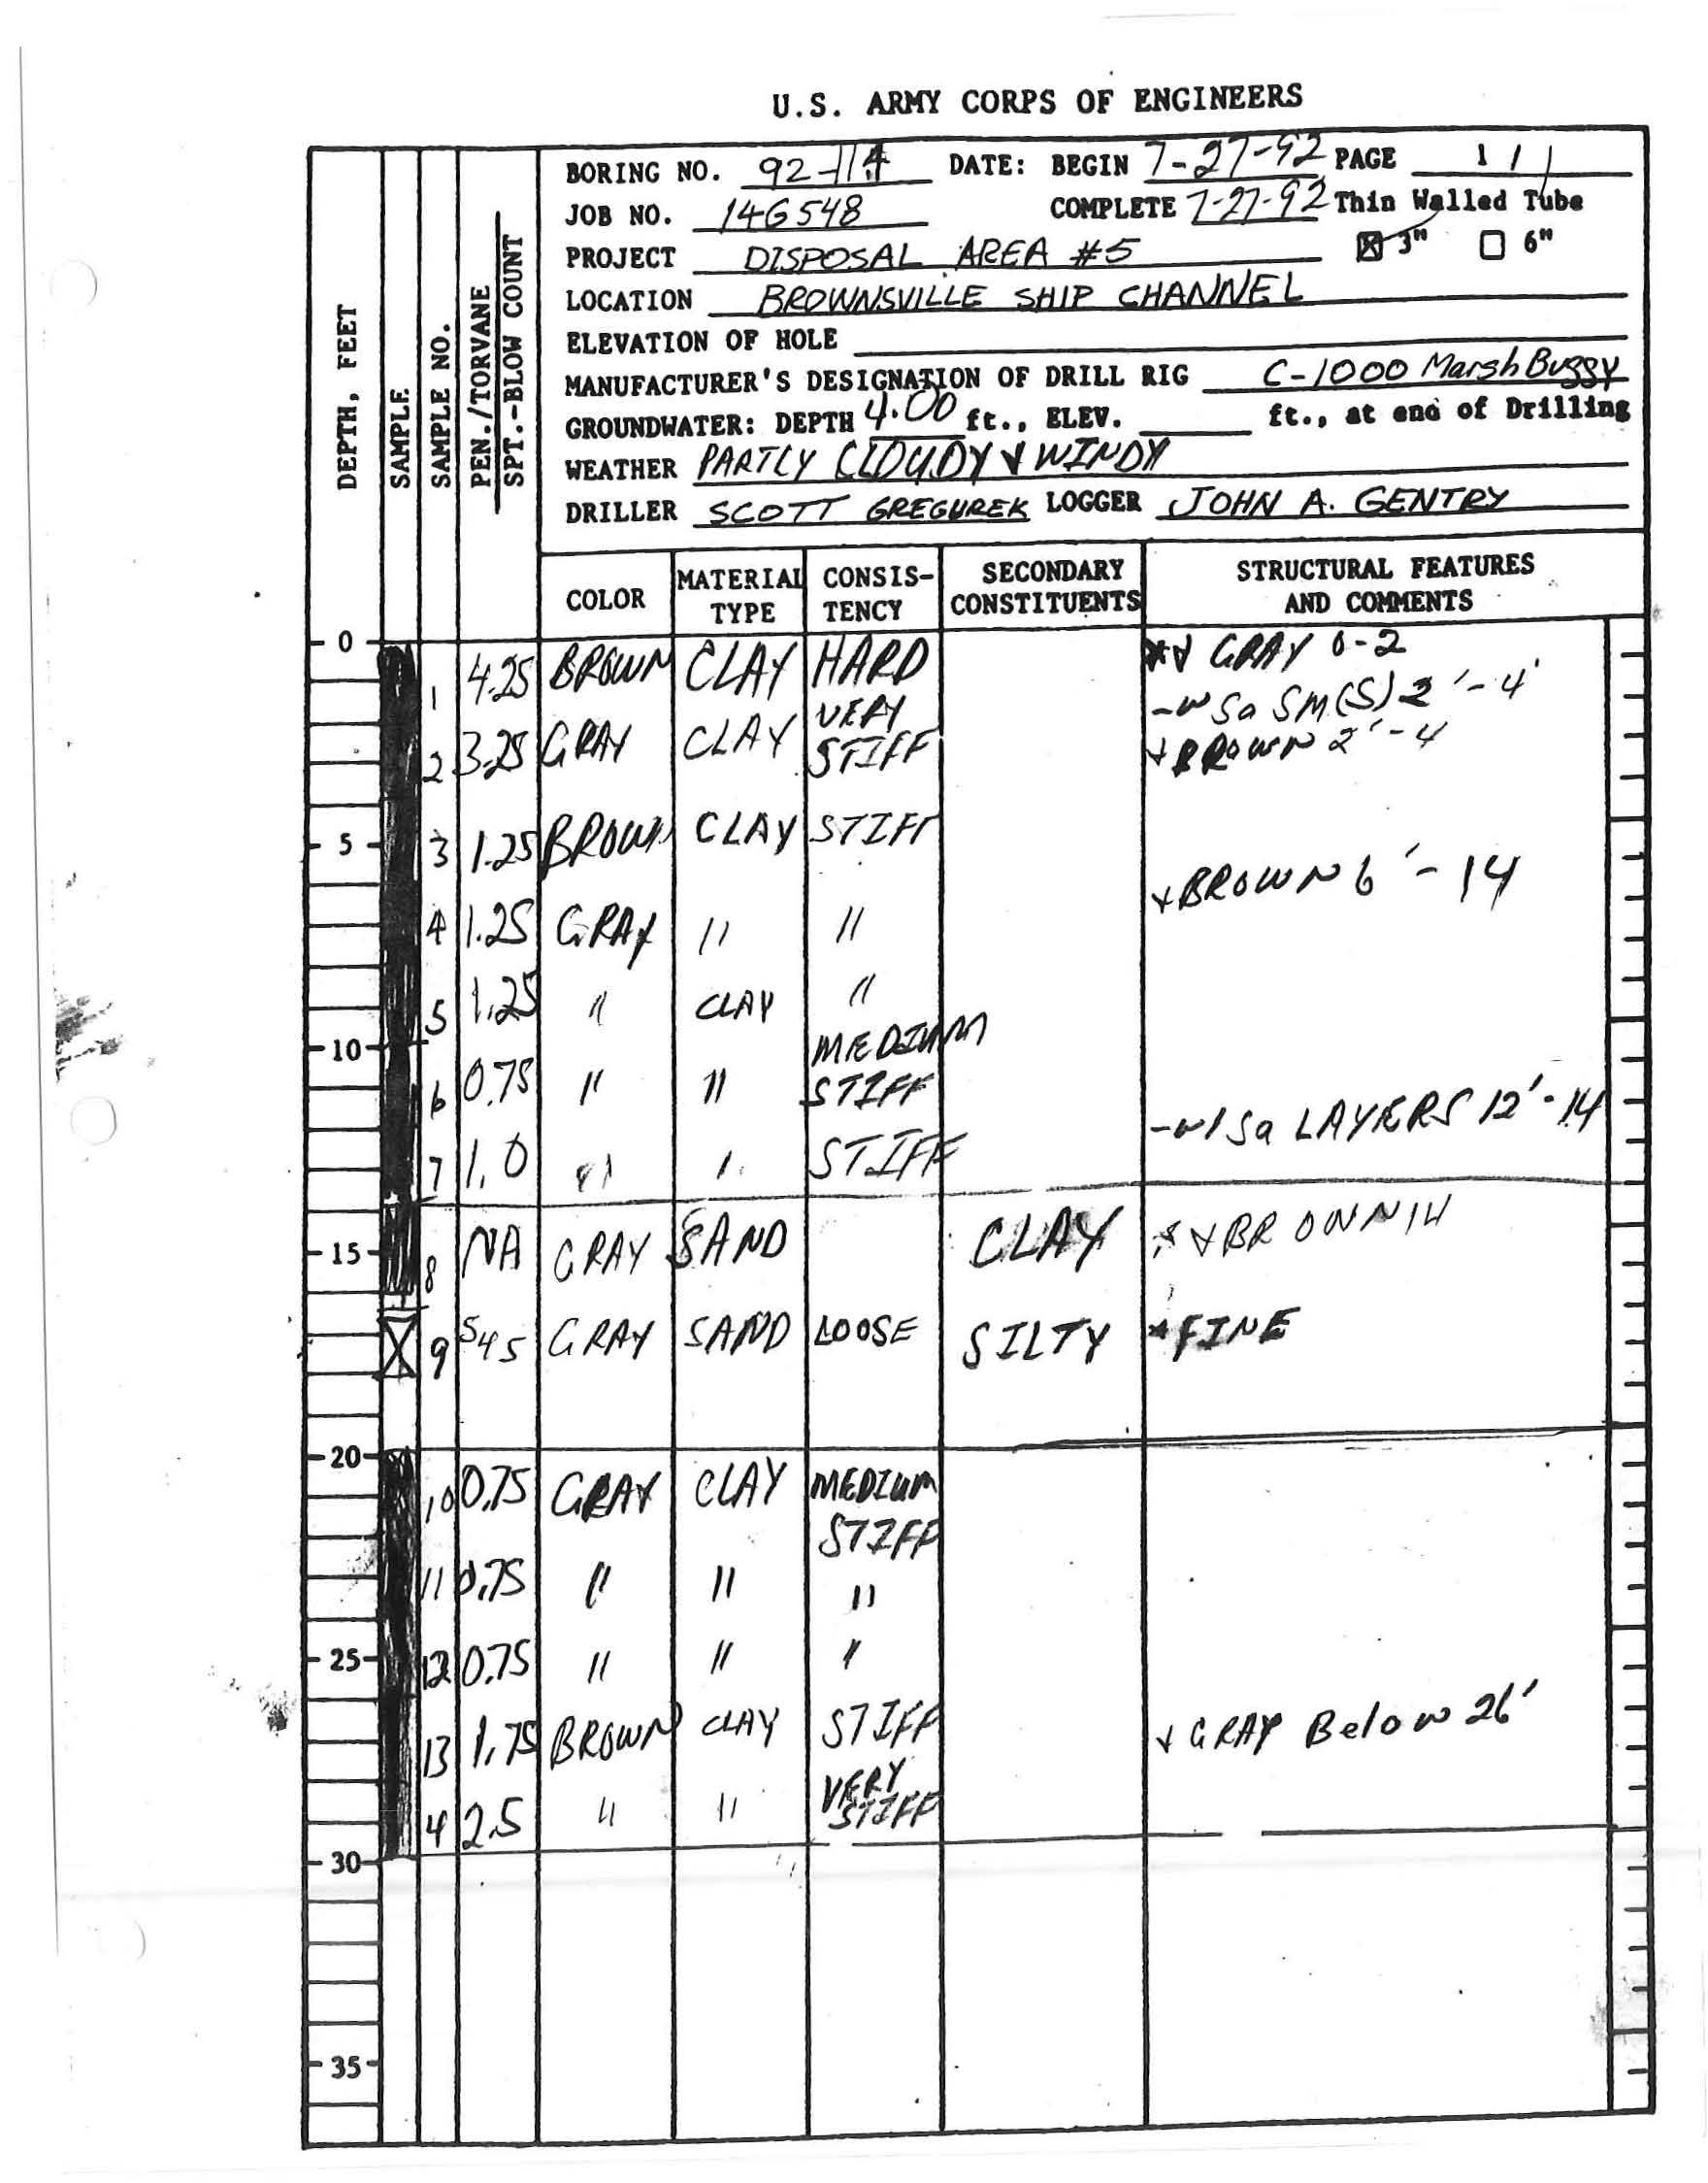 U.S. ARMY CORPS OF ENGINEERS
BORING NO. 92-114 DATE: BEGIN 7-27-92 PAGE 1 / 1
JOB NO. 14G548 COMPLETE 7-27-92 Thin Walled Tube
PROJECT DISPOSAL AREA #5 ☒ 3" ☐ 6"
LOCATION BROWNSVILLE SHIP CHANNEL
ELEVATION OF HOLE
MANUFACTURER'S DESIGNATION OF DRILL RIG C-1000 Marsh Buggy
GROUNDWATER: DEPTH 4.00 ft., ELEV. ft., at end of Drilling
WEATHER PARTLY CLOUDY & WINDY
DRILLER SCOTT GREGUREK LOGGER JOHN A. GENTRY
DEPTH, FEET
SAMPLE
SAMPLE NO.
PEN./TORVANE
SPT.-BLOW COUNT
COLOR
MATERIAL TYPE
CONSIS-TENCY
SECONDARY CONSTITUENTS
STRUCTURAL FEATURES AND COMMENTS
0
1 4.25 BROWN CLAY HARD & GRAY 0-2
-w Sa SM(S) 2'-4'
2 3.25 GRAY CLAY VERY STIFF & BROWN 2'-4
5
3 1.25 BROWN CLAY STIFF
& BROWN 6'-14
4 1.25 GRAY " "
5 1.25 " CLAY "
10
6 0.75 " " MEDIUM STIFF
-w/Sa LAYERS 12'-14
7 1.0 " " STIFF
15
8 NA GRAY SAND CLAY * & BROWN 14
9 5 4 5 GRAY SAND LOOSE SILTY * FINE
20
10 0.75 GRAY CLAY MEDIUM STIFF
11 0.75 " " "
25
12 0.75 " " "
13 1.75 BROWN CLAY STIFF & GRAY Below 26'
4 2.5 " " VERY STIFF
30
35